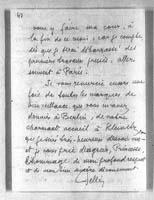 vous y faire ma cour, à
la fin de ce mois; car je compte
dès que je serai débarrassé des
premiers travaux pressés, aller
souvent à Paris.
Je vous remercie encore une
fois de toutes les marques de
bienveillance que vous m'avez
données à Berlin, de votre
charmant accueil à
que je suis bien
et je vous prie d'agréer, Princesse,
l'hommage de mon profond respect
et de mon bien sincère dévouement.